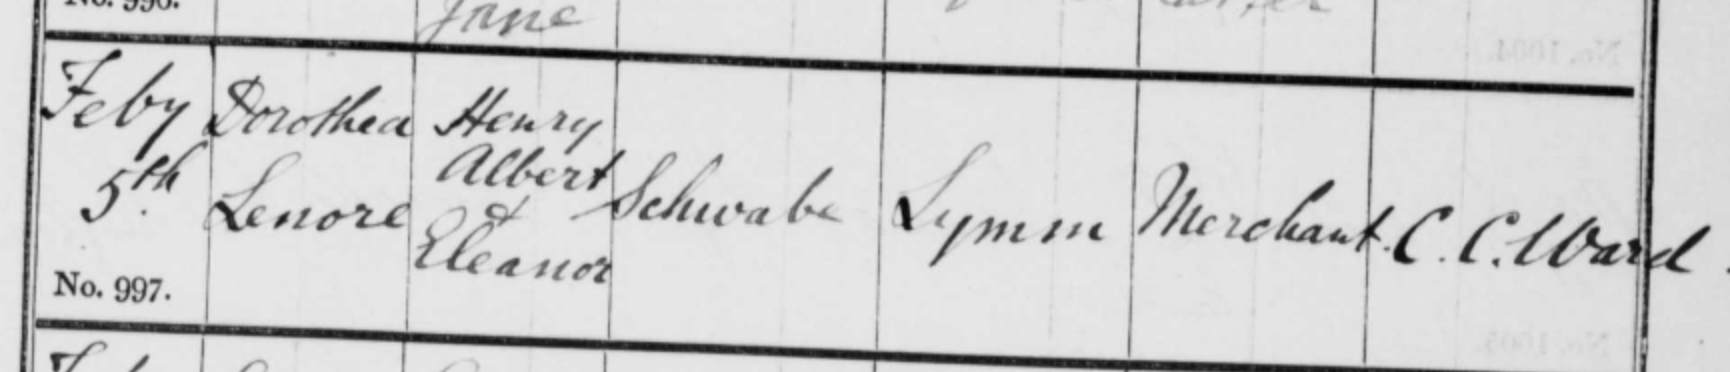 No. 996.
Jane
Feby
5th.
No. 997.
Dorothea
Lenore
Henry
Albert
&
Eleanor
Schwabe
Lymm
Merchant.
C. C. Ward.
No. 1004.
No. 1005.